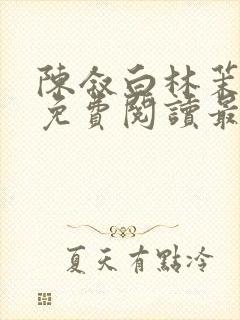 陳叙白林茉
免費閱讀最
夏天有點冷